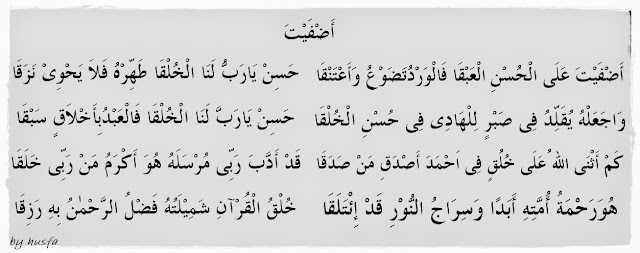 أَضْفَيْتَ
أَضْفَيْتَ عَلَى الْحُسْنِ الْعَبْقَا فَالْوَرْدُتَضَوْعُ وَأَعْتَنْقَا حَسِنْ يَارَبُّ لَنَا الْخُلْقَا طَهِّرْهُ فَلاَ يَحْوِىْ نَزَقَا
وَاجْعَلْهُ يُقَلِّدُ فِى صَبْرٍ لِلْهَادِى فِى حُسْنِ الْخُلْقَا حَسِنْ يَارَبَّ لَنَا الْخُلْقَا فَالْعَبْدُبِأَخْلاَقٍ سَبْقَا
كَمْ أَثْنَى اللهُ عَلَى خُلُقٍ فِى اَحْمَدَ أَصْدَقِ مَنْ صَدَقَا قَدْ أَدَّبَ رَبِّى مُرْسَلَهُ هُوَ أَكْرَمُ مَنْ رَبِّى خَلَقَا
هُوَرَحْمَةُ اُمَّتِهِ أَبَدًا وَسِرَاجُ النُّوْرِ قَدْ إِنْتَلَقَا خُلْقُ الْقُرْآنِ شَمِيْلَتُهُ فَضْلُ الرَّحْمٰنُ بِهِ رَزِقَا
by husfa